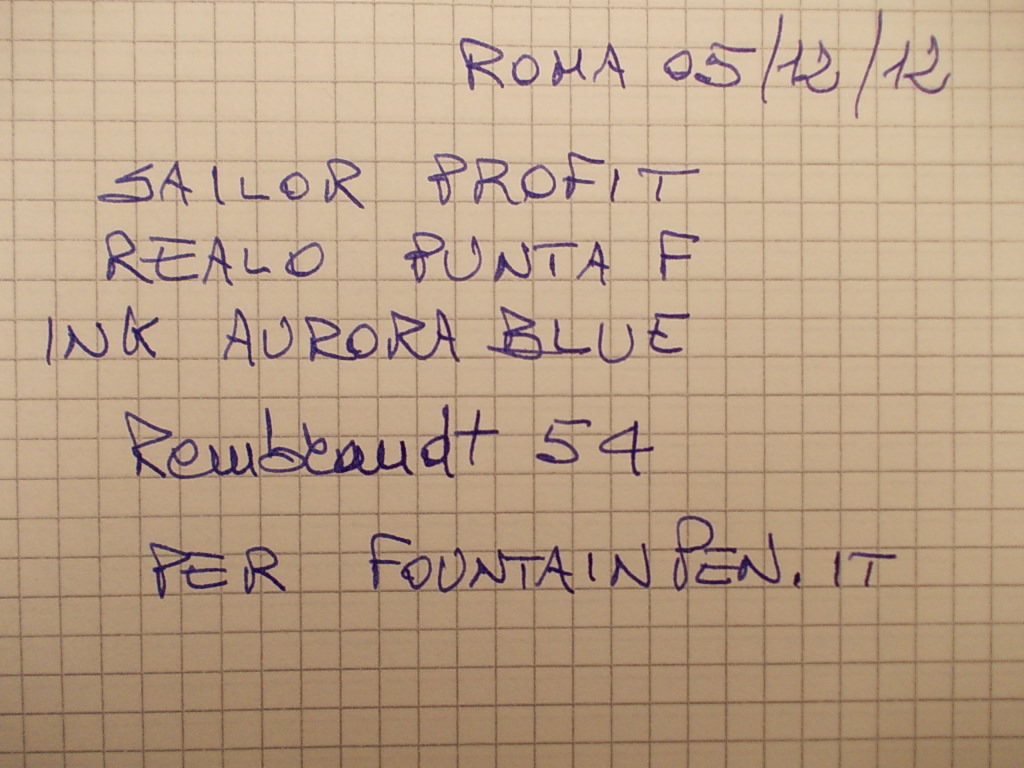 ROMA 05/12/12
SAILOR PROFIT
REALO PUNTA F
INK AURORA BLUE
Rembrandt 54
PER FOUNTAINPEN.IT